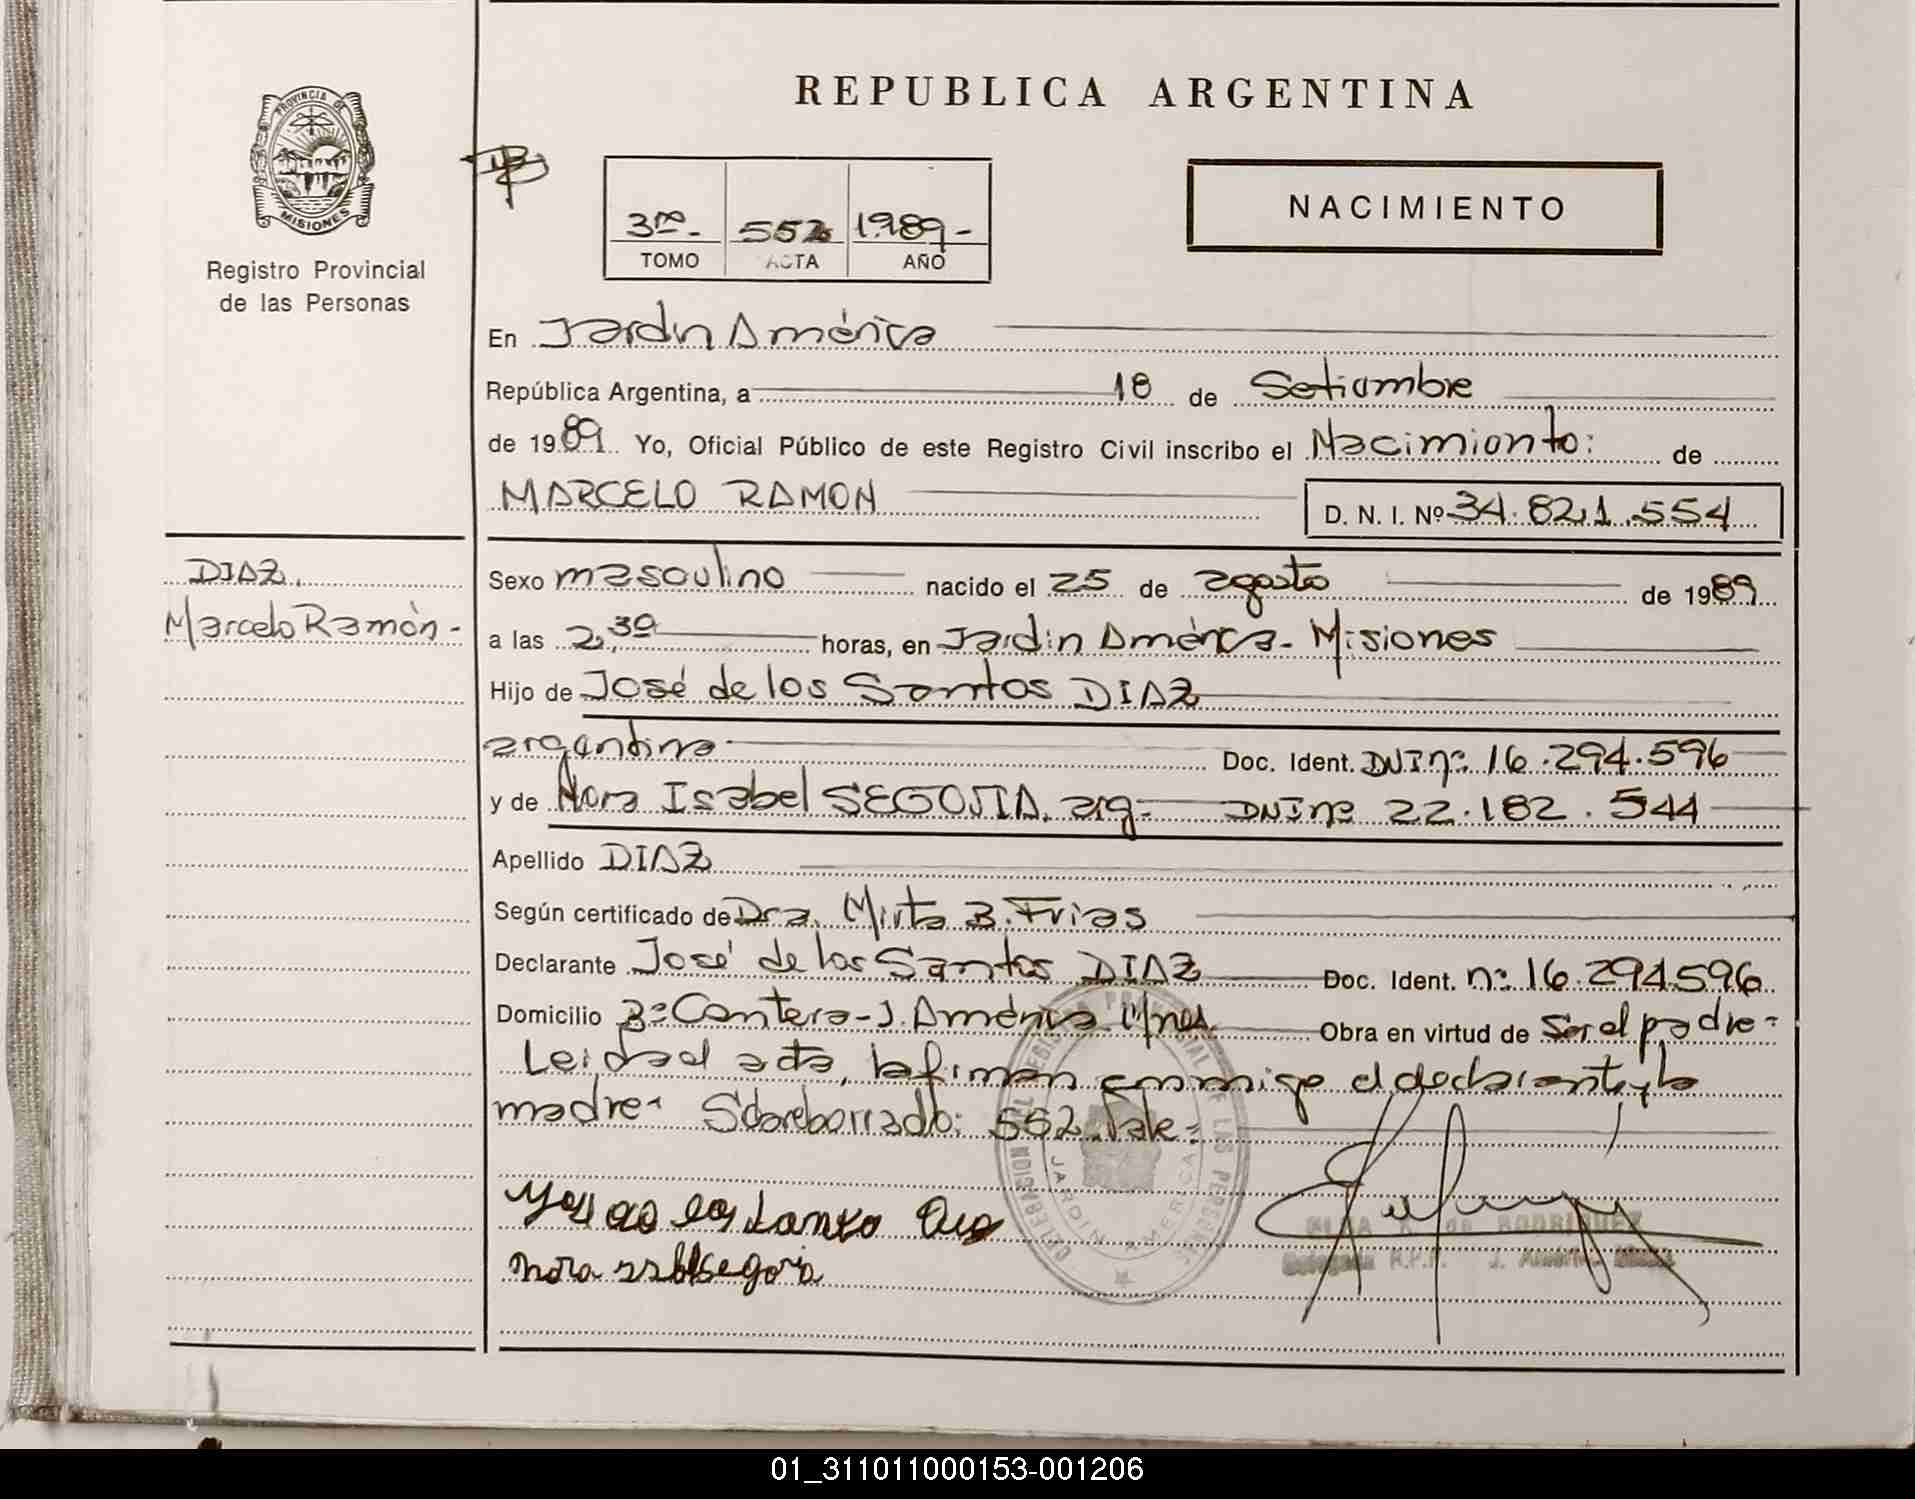 REPUBLICA ARGENTINA
PROVINCIA DE
MISIONES
Registro Provincial
de las Personas
3ro- 552 1989-
TOMO ACTA AÑO
NACIMIENTO
En Jardin América
República Argentina, a 18 de Setiembre
de 1989. Yo, Oficial Público de este Registro Civil inscribo el Nacimiento: de
MARCELO RAMON D. N. I. Nº 34.821.554
DIAZ.
Marcelo Ramón-
Sexo masculino nacido el 25 de agosto de 1989
a las 2,30 horas, en Jardin América- Misiones
Hijo de José de los Santos DIAZ
argentina- Doc. Ident. DNI nº 16.294.596
y de Nora Isabel SEGOVIA. arg- DNI nº 22.182.544
Apellido DIAZ
Según certificado de Dra. Mirta B. Frias
Declarante José de los Santos DIAZ Doc. Ident. nº 16.294596
Domicilio Bº Cantera-J. América Mnes. Obra en virtud de Ser el padre-
Leida el acta, la firman conmigo el declarante y la
madre- Sobreborrado: 552. Vale-
JARDIN AMERICA
de RODRIGUEZ
Delegada R.P.P. J. América
nora isabel segovia
01_311011000153-001206